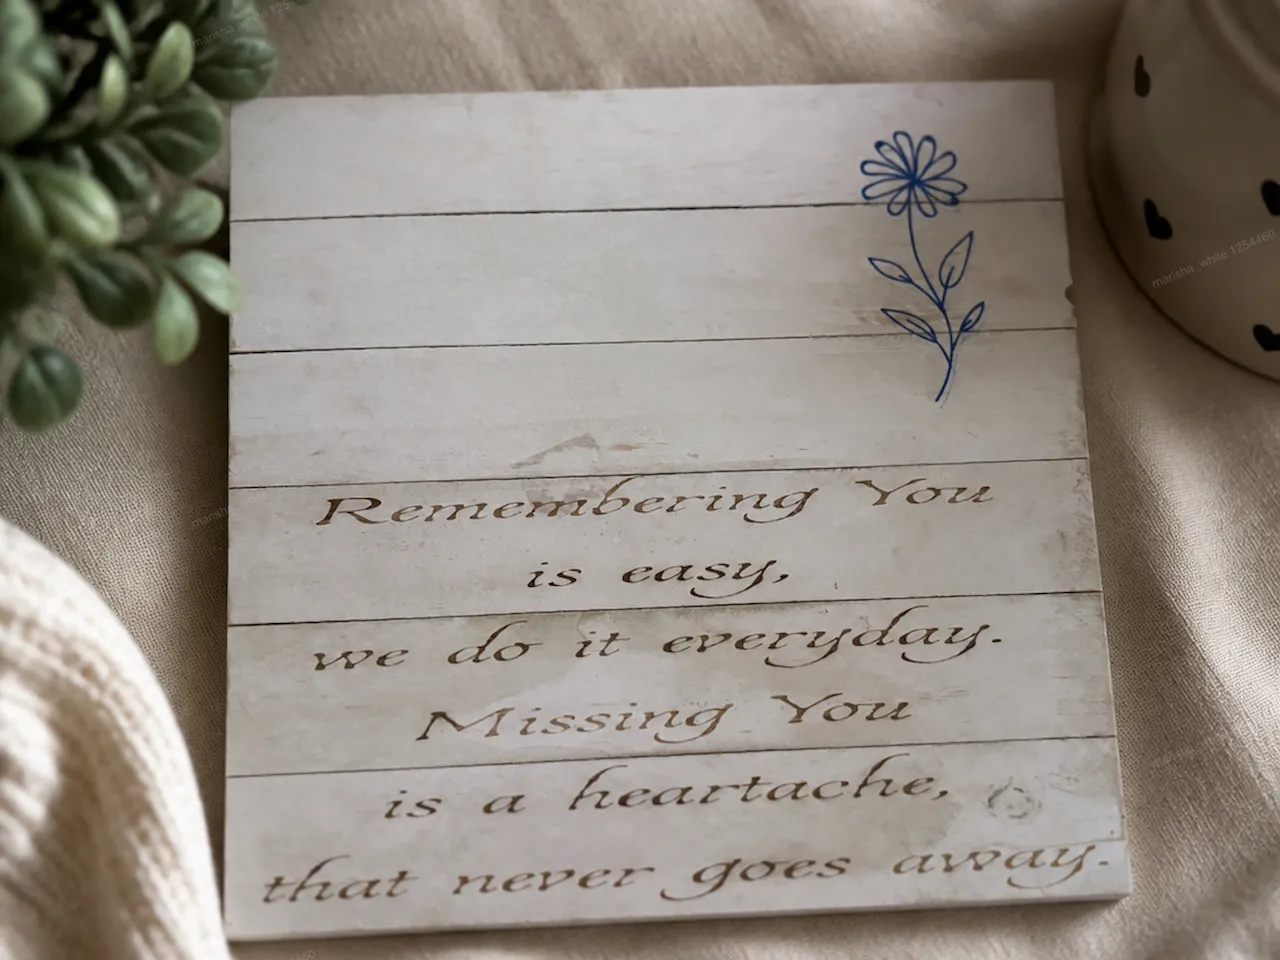 Remembering You
is easy,
we do it everyday.
Missing You
is a heartache,
that never goes away.
marisha_white 1254460